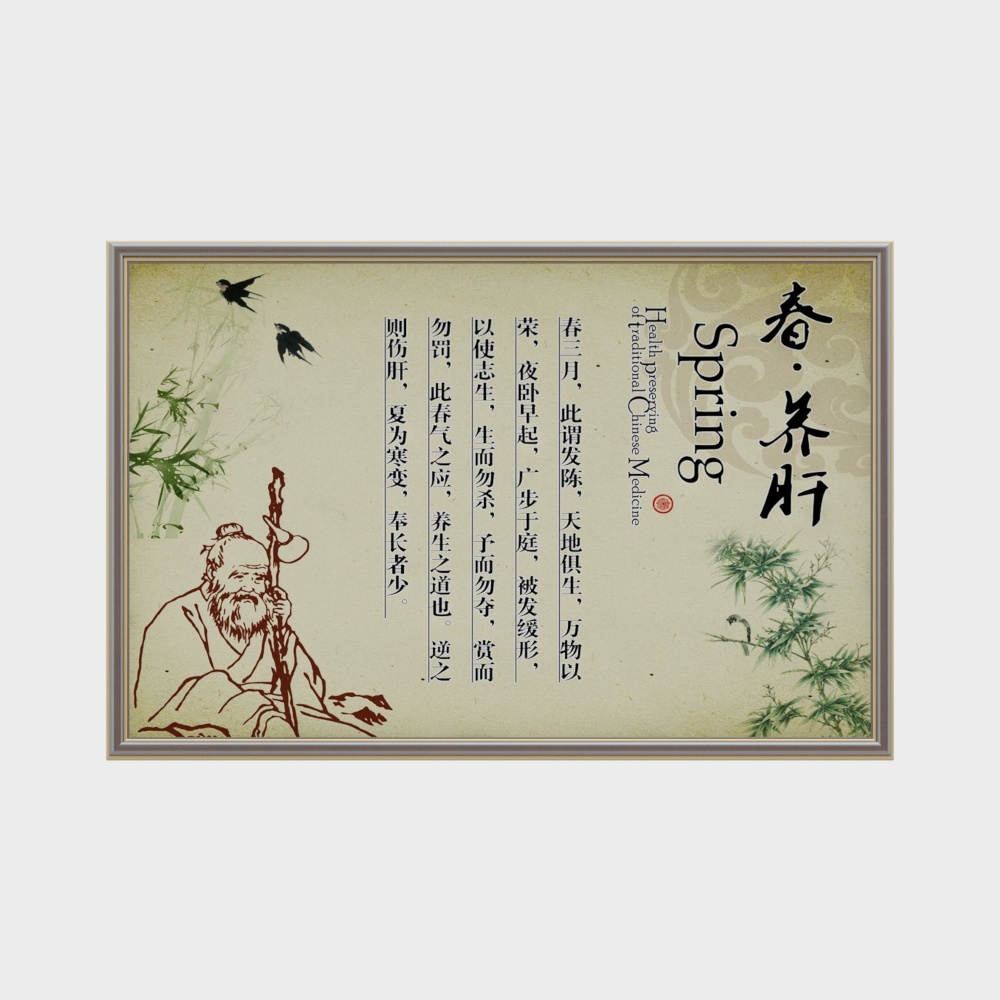 春·养肝
Spring
Health preserving
of traditional Chinese Medicine
春三月，此谓发陈，天地俱生，万物以
荣，夜卧早起，广步于庭，被发缓形，
以使志生，生而勿杀，予而勿夺，赏而
勿罚，此春气之应，养生之道也。逆之
则伤肝，夏为寒变，奉长者少。